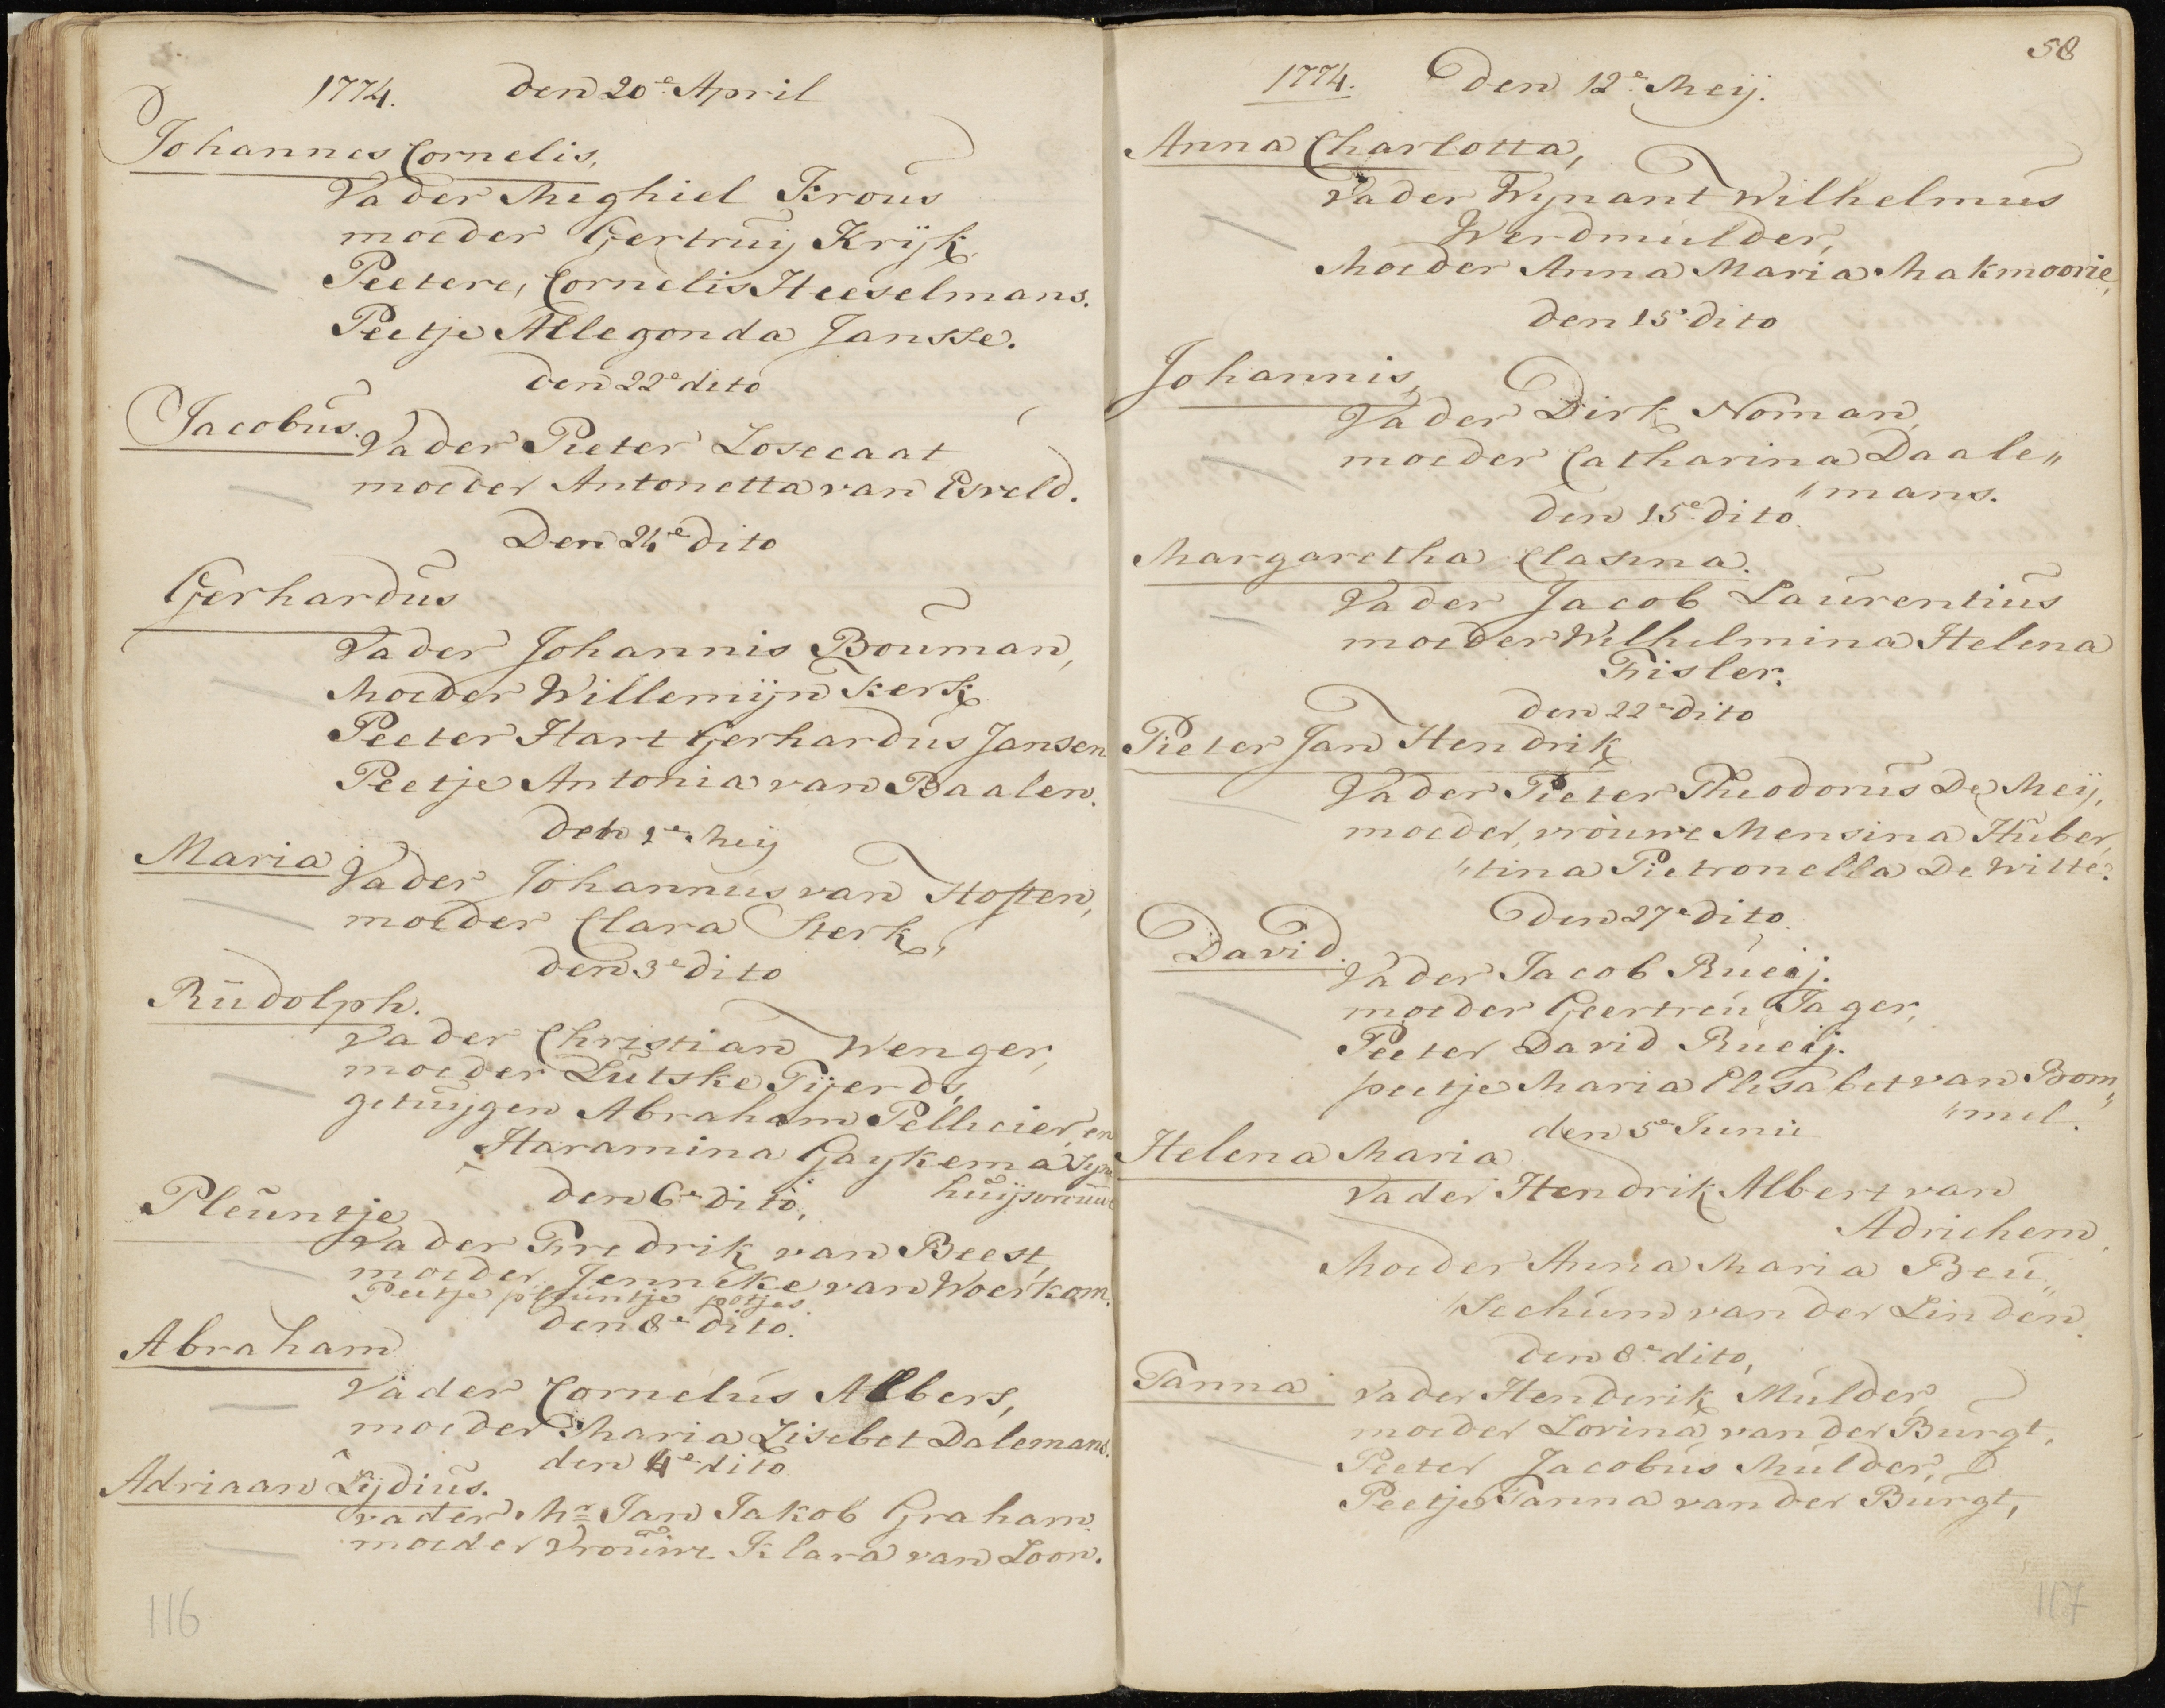 1774. den 20e April
Johannes Cornelis,
Vader Mighiel Krous
moeder Gertruij Krijk
Peetere, Cornelis Heeselmans.
Peetje Allegonda Jansse.
den 22e dito
Jacobus. Vader Pieter Losecaat
moeder Antonetta van Esveld.
Den 24e dito
Gerhardus
Vader Johannis Bouman,
Moeder Willemijn Kerk
Peeter Hart Gerhardus Jansen
Peetje Antonia van Baalen.
den 1e Meij
Maria Vader Johannus van Hosten,
moeder Clara Sterk,
den 3e dito
Rudolph.
Vader Christian Wenger,
moeder Lutske Tijerds,
getuijgen Abraham Pellicier, en
Haramina Gaykema Syn
huijsvrouw
den 6e dito,
Pleuntje
Vader Fredrik van Beest,
moeder Jenneke van Woerkom.
Peetje pleuntje potjes.
den 8e dito.
Abraham
Vader Cornelus Albers,
moeder Maria Lisebet Dalemans.
den 4e dito
Adriaan Lijdius.
vader Mr Jan Jakob Graham
moeder Vrouwe Klara van Loon.
116
58
1774. Den 12e Meij.
Anna Charlotta,
Vader Wynant Wilhelmus
Werdmulder,
Moeder Anna Maria Makmoorie,
den 15e dito
Johannis,
Vader Dirk Noman,
moeder Catharina Daale„
„mans.
den 15e dito.
Margaretha Clasina.
Vader Jacob Laurentius
moeder Wilhelmina Helena
Fisler.
den 22e dito
Pieter Jan Hendrik
Vader Pieter Theodorus De Meij,
moeder, vrouwe Mensina Huber,
„tina Pietronella De Witte.
Den 27e dito.
David.
Vader Jacob Rueij.
moeder Geertreu Jager,
Peeter David Rueij.
peetje Maria Elisabet van Bom„
„mel.
den 5e Junii
Helena Maria
Vader Hendrik Albert van
Adrichem.
Moeder Anna Maria Beu„
„sechum van der Linden.
den 8e dito,
Tanna Vader Henderik Mulder,
moeder Lovina van der Burgt,
Peeter Jacobus Mulder,
Peetje Tanna van der Burgt,
117